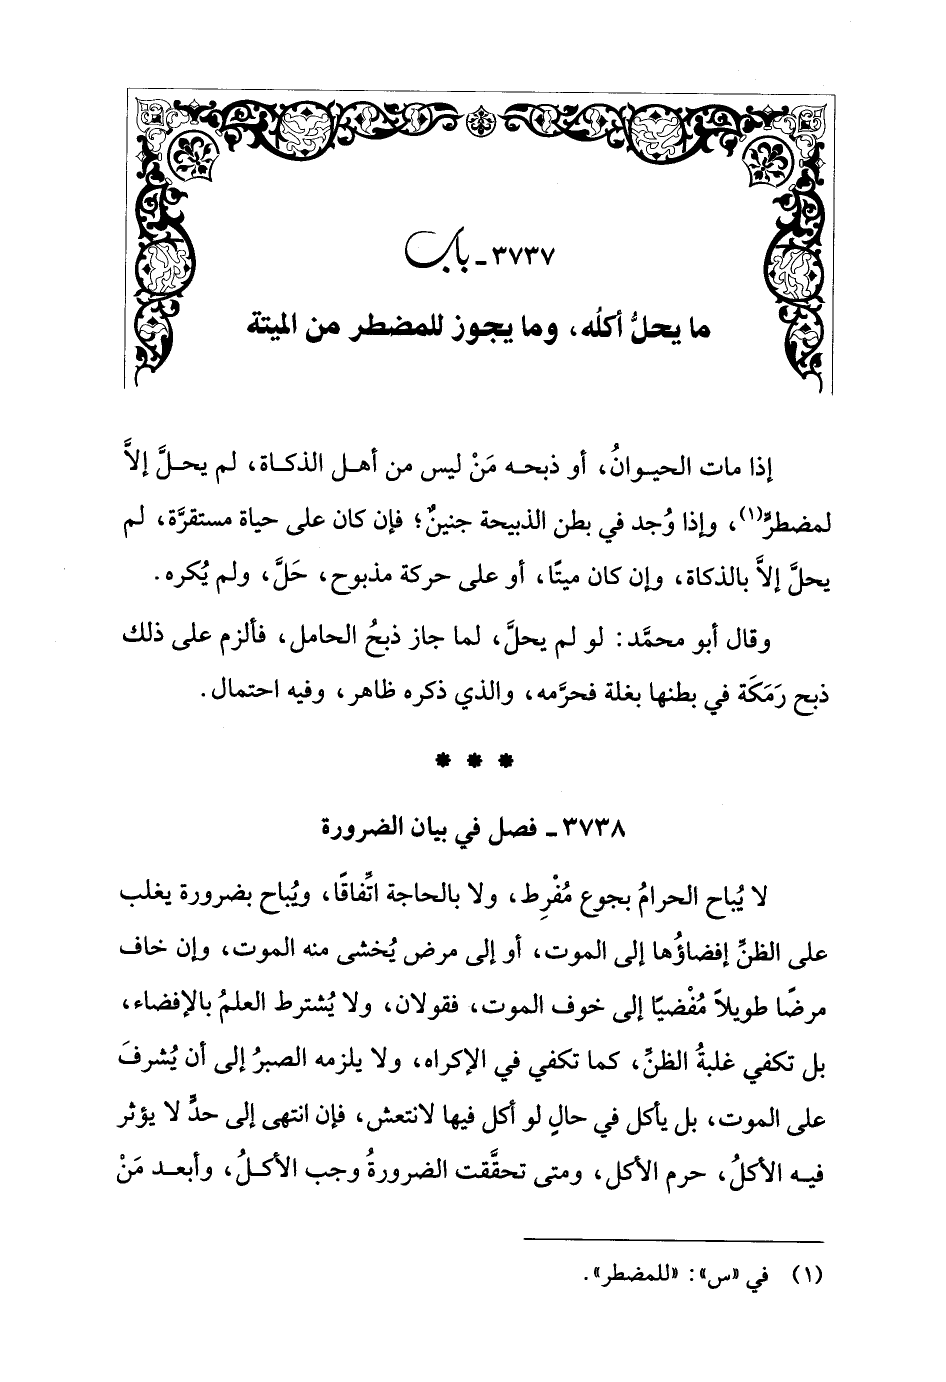 ٣٧٣٧ ـ باب
ما يحلُّ أكلُه، وما يجوز للمضطر من الميتة
إذا مات الحيوانُ، أو ذبحه مَنْ ليس من أهل الذكاة، لم يحلَّ إلاَّ
لمضطرٍّ(١)، وإذا وُجد في بطن الذبيحة جنينٌ؛ فإن كان على حياة مستقرَّة، لم
يحلَّ إلاَّ بالذكاة، وإن كان ميتًا، أو على حركة مذبوح، حَلَّ، ولم يُكره.
وقال أبو محمَّد: لو لم يحلَّ، لما جاز ذبحُ الحامل، فألزم على ذلك
ذبح رَمَكَة في بطنها بغلة فحرَّمه، والذي ذكره ظاهر، وفيه احتمال.
* * *
٣٧٣٨ ـ فصل في بيان الضرورة
لا يُباح الحرامُ بجوع مُفْرِط، ولا بالحاجة اتِّفاقًا، ويُباح بضرورة يغلب
على الظنِّ إفضاؤُها إلى الموت، أو إلى مرض يُخشى منه الموت، وإن خاف
مرضًا طويلاً مُفْضيًا إلى خوف الموت، فقولان، ولا يُشترط العلمُ بالإفضاء،
بل تكفي غلبةُ الظنِّ، كما تكفي في الإكراه، ولا يلزمه الصبرُ إلى أن يُشرفَ
على الموت، بل يأكل في حالٍ لو أكل فيها لانتعش، فإن انتهى إلى حدٍّ لا يؤثر
فيه الأكلُ، حرم الأكل، ومتى تحقَّقت الضرورةُ وجب الأكلُ، وأبعد مَنْ
(١) في «س»: «للمضطر».